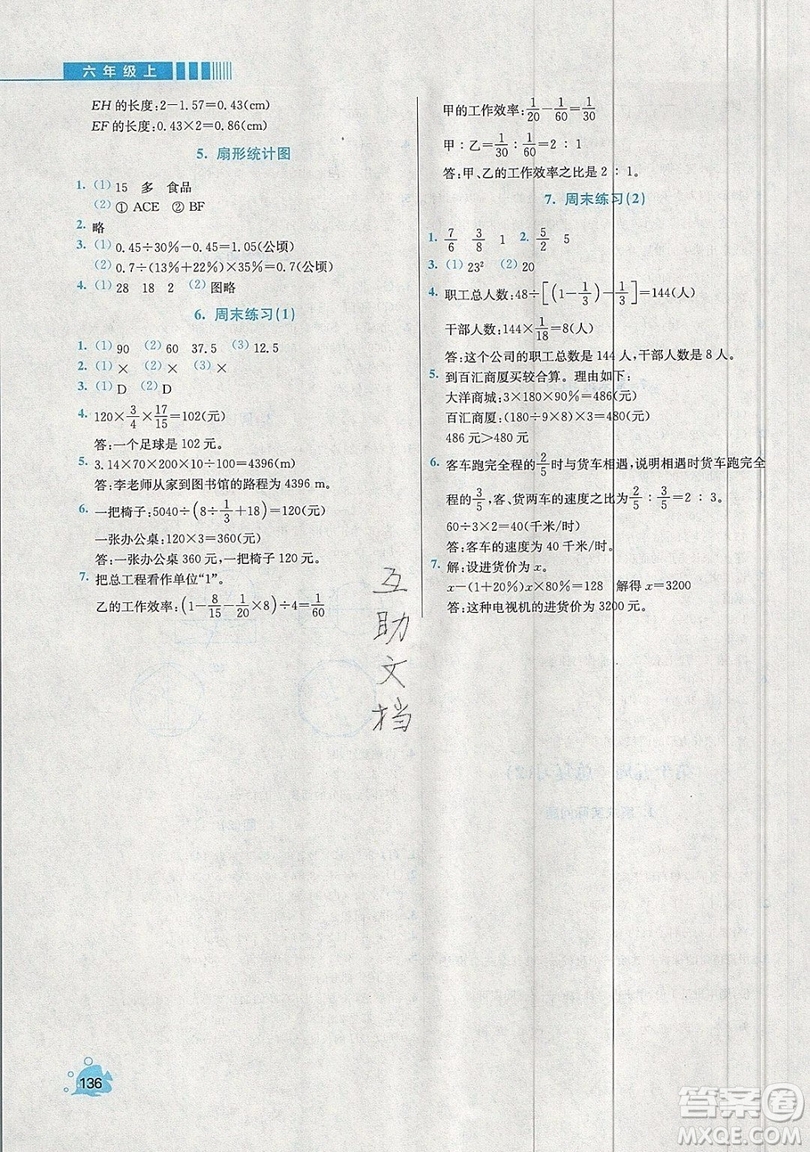 六年级上
EH的长度:2－1.57=0.43(cm)
EF的长度:0.43×2=0.86(cm)
5. 扇形统计图
1. (1) 15 多 食品
(2) ① ACE ② BF
2. 略
3. (1) 0.45÷30%－0.45=1.05(公顷)
(2) 0.7÷(13%+22%)×35%=0.7(公顷)
4. (1) 28 18 2 (2) 图略
6. 周末练习(1)
1. (1) 90 (2) 60 37.5 (3) 12.5
2. (1) × (2) ×
3. (1) D (2) D
4. 120×3/4×17/15=102(元)
答:一个足球是102元。
5. 3.14×70×200×10÷100=4396(m)
答:李老师从家到图书馆的路程为4396 m。
6. 一把椅子:5040÷(8÷1/3+18)=120(元)
一张办公桌:120×3=360(元)
答:一张办公桌360元,一把椅子120元。
7. 把总工程看作单位“1”。
乙的工作效率:(1－8/15－1/20×8)÷4=1/60
甲的工作效率:1/20－1/60=1/30
甲∶乙=1/30∶1/60=2∶1
答:甲、乙的工作效率之比是2∶1。
7. 周末练习(2)
1. 7/6 3/8 1 2. 5/2 5
3. (1) 23² (2) 20
4. 职工总人数:48÷[(1－1/3)－1/3]=144(人)
干部人数:144×1/18=8(人)
答:这个公司的职工总数是144人,干部人数是8人。
5. 到百汇商厦买较合算。理由如下:
大洋商城:3×180×90%=486(元)
百汇商厦:(180÷9×8)×3=480(元)
486元>480元
6. 客车跑完全程的2/5时与货车相遇,说明相遇时货车跑完全
程的3/5,客、货两车的速度之比为2/5∶3/5=2∶3。
60÷3×2=40(千米/时)
答:客车的速度为40千米/时。
7. 解:设进货价为x。
x－(1+20%)x×80%=128 解得x=3200
答:这种电视机的进货价为3200元。
互助文档
136
答案圈
MXQE.COM